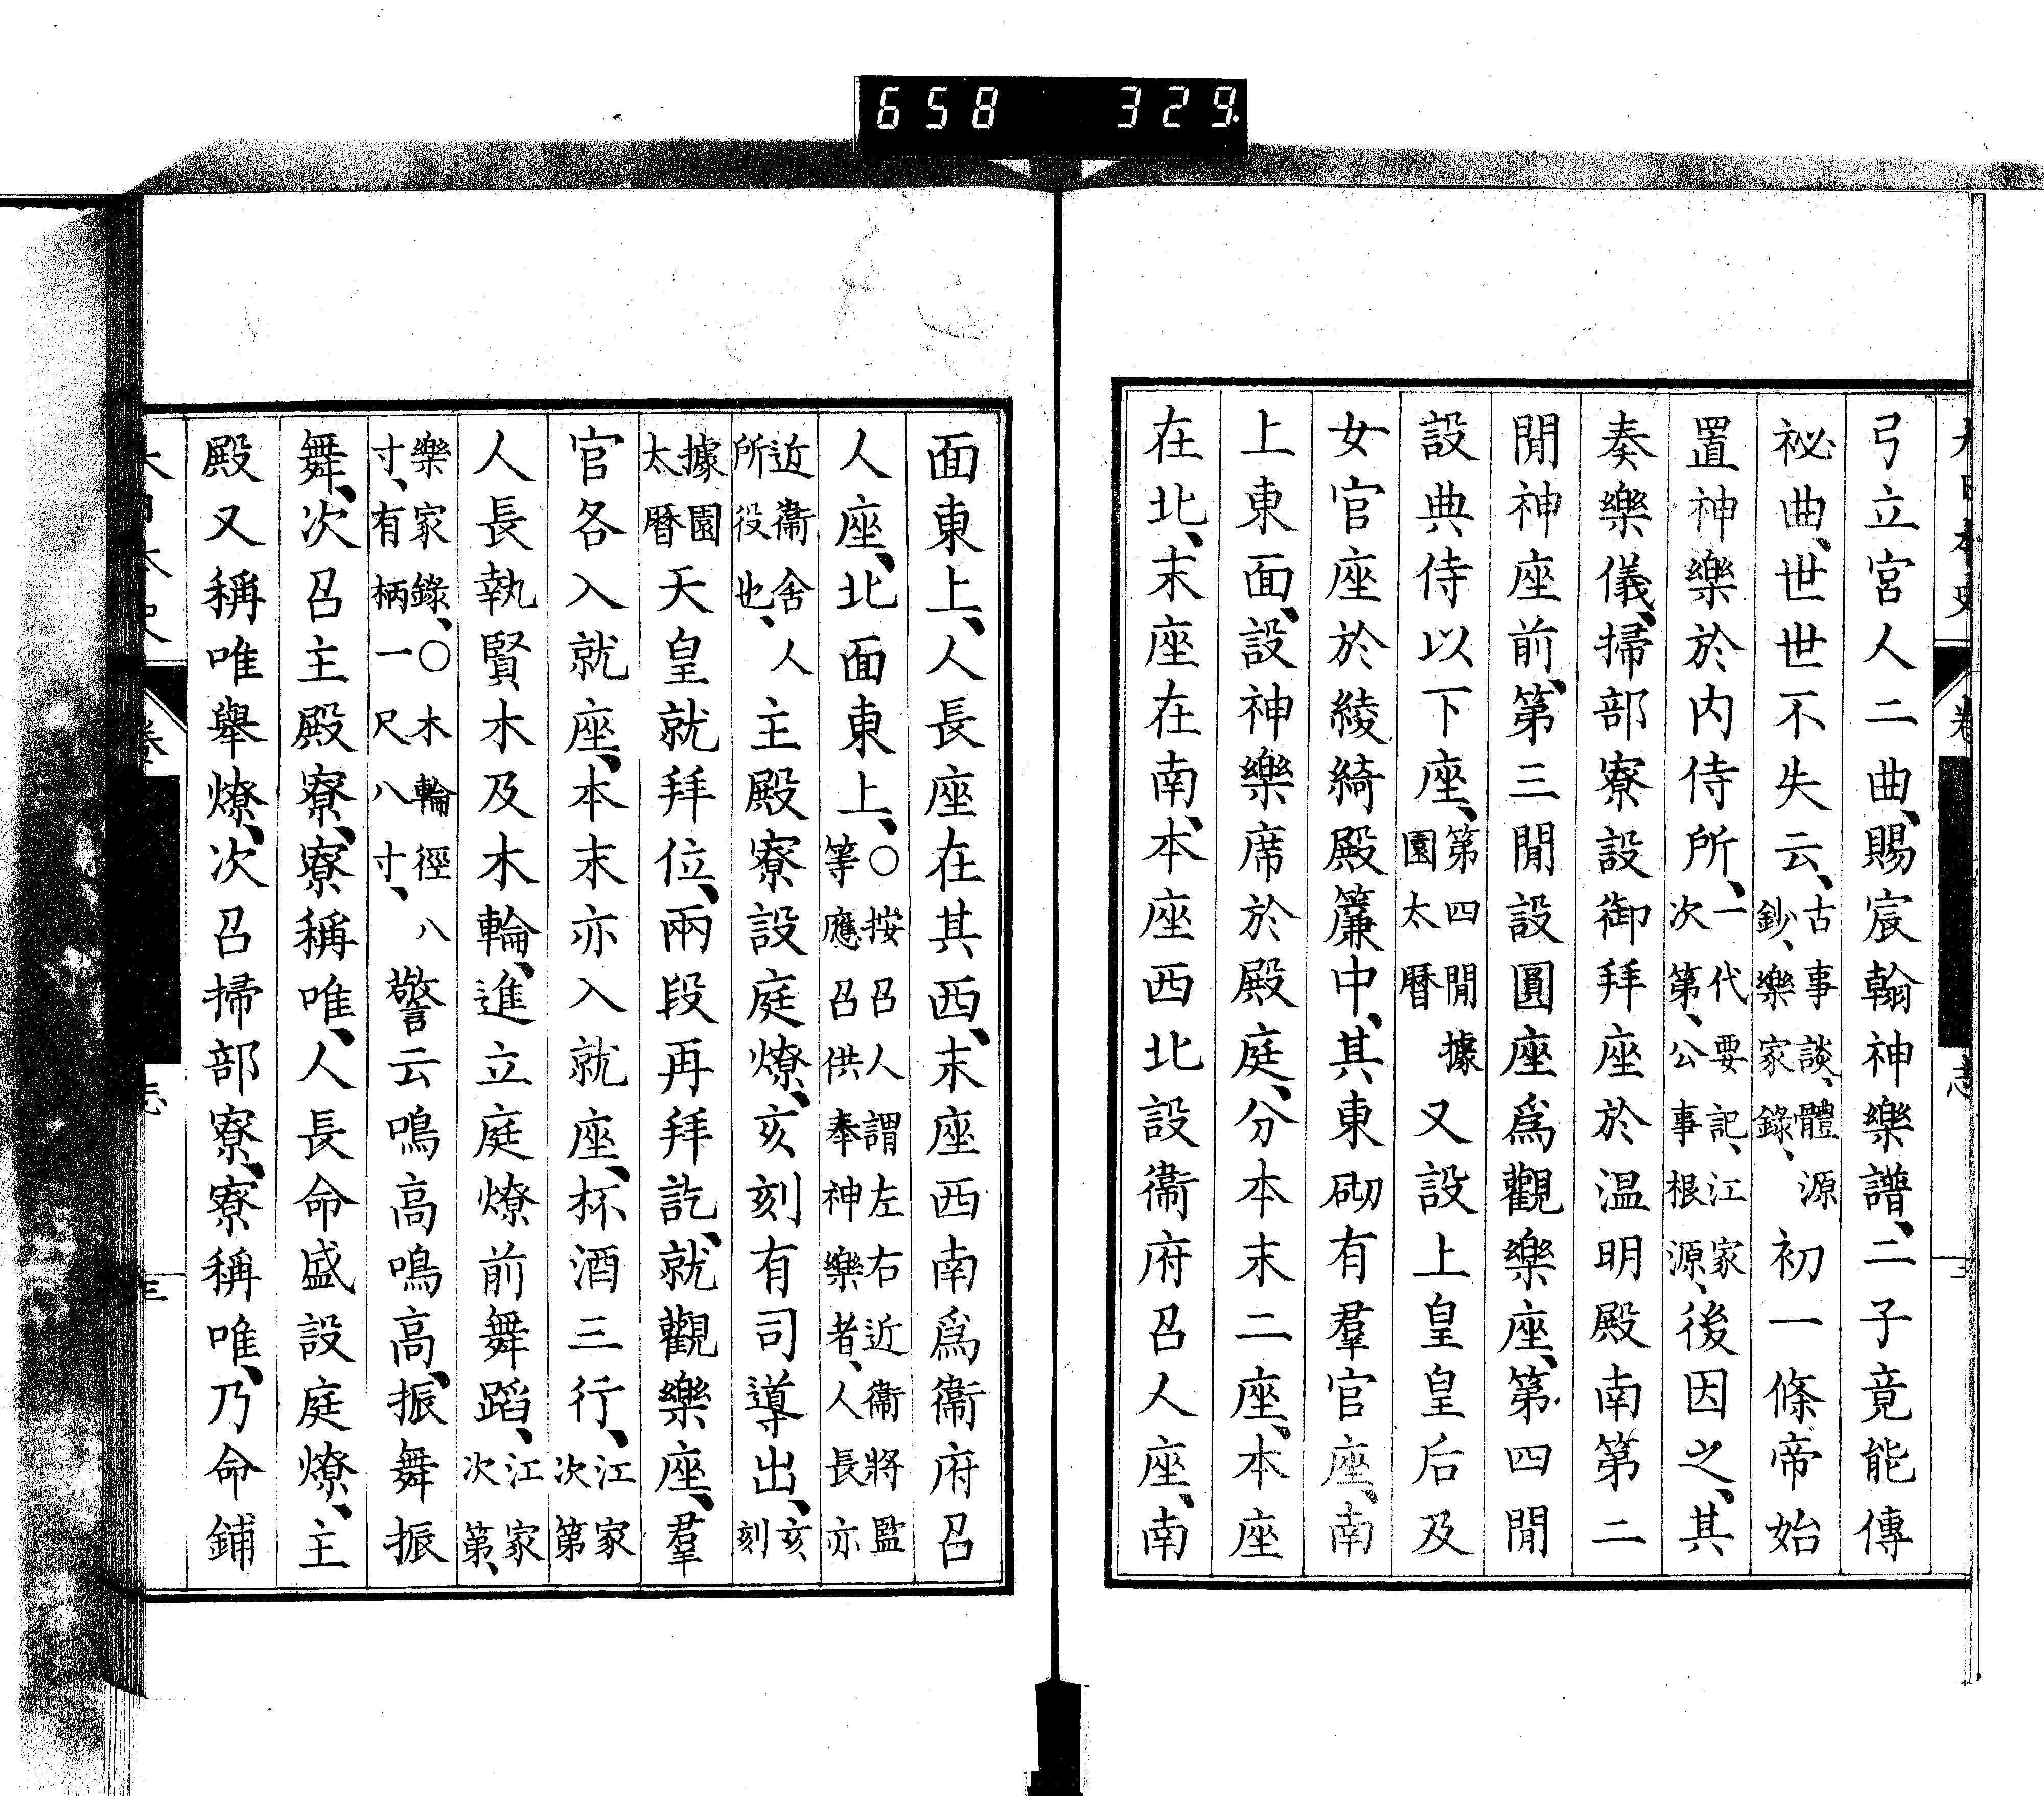 658 329
弓立宮人二曲、賜宸翰神樂譜、二子竟能傳
祕曲、世世不失云、古事談、體源鈔、樂家錄、初一條帝始
置神樂於内侍所、一代要記、江家次第、公事根源、後因之、其
奏樂儀、掃部寮設御拜座於温明殿南第二
閒神座前、第三閒設圓座爲觀樂座、第四閒
設典侍以下座、第四閒據園太曆又設上皇皇后及
女官座於綾綺殿簾中、其東砌有羣官座、南
上東面、設神樂席於殿庭、分本末二座、本座
在北、末座在南、本座西北設衞府召人座、南
面東上、人長座在其西、末座西南爲衞府召
人座、北面東上、○按召人謂左右近衞將監等應召供奉神樂者、人長亦
近衞舍人所役也、主殿寮設庭燎、亥刻有司導出、亥刻
據園太曆天皇就拜位、兩段再拜訖、就觀樂座、羣
官各入就座、本末亦入就座、杯酒三行、江家次第
人長執賢木及木輪、進立庭燎前舞蹈、江家次第、
樂家錄、○木輪徑八寸、有柄一尺八寸、警云鳴高鳴高、振舞振
舞、次召主殿寮、寮稱唯、人長命盛設庭燎、主
殿又稱唯舉燎、次召掃部寮、寮稱唯、乃命鋪